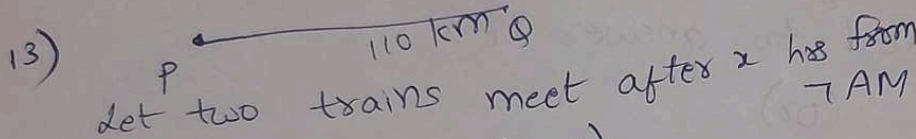 13)
110 km
P Q
Let two trains meet after x hrs from
7 AM